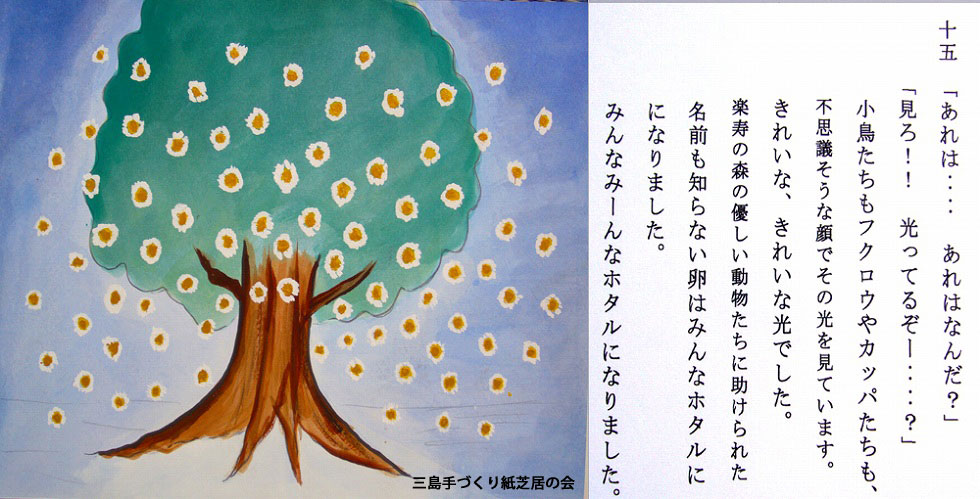 十五 「あれは・・・・ あれはなんだ？」
「見ろ！！ 光ってるぞー・・・・？」
小鳥たちもフクロウやカッパたちも、
不思議そうな顔でその光を見ています。
きれいな、きれいな光でした。
楽寿の森の優しい動物たちに助けられた
名前も知らない卵はみんなホタルに
になりました。
みんなみーんなホタルになりました。
三島手づくり紙芝居の会